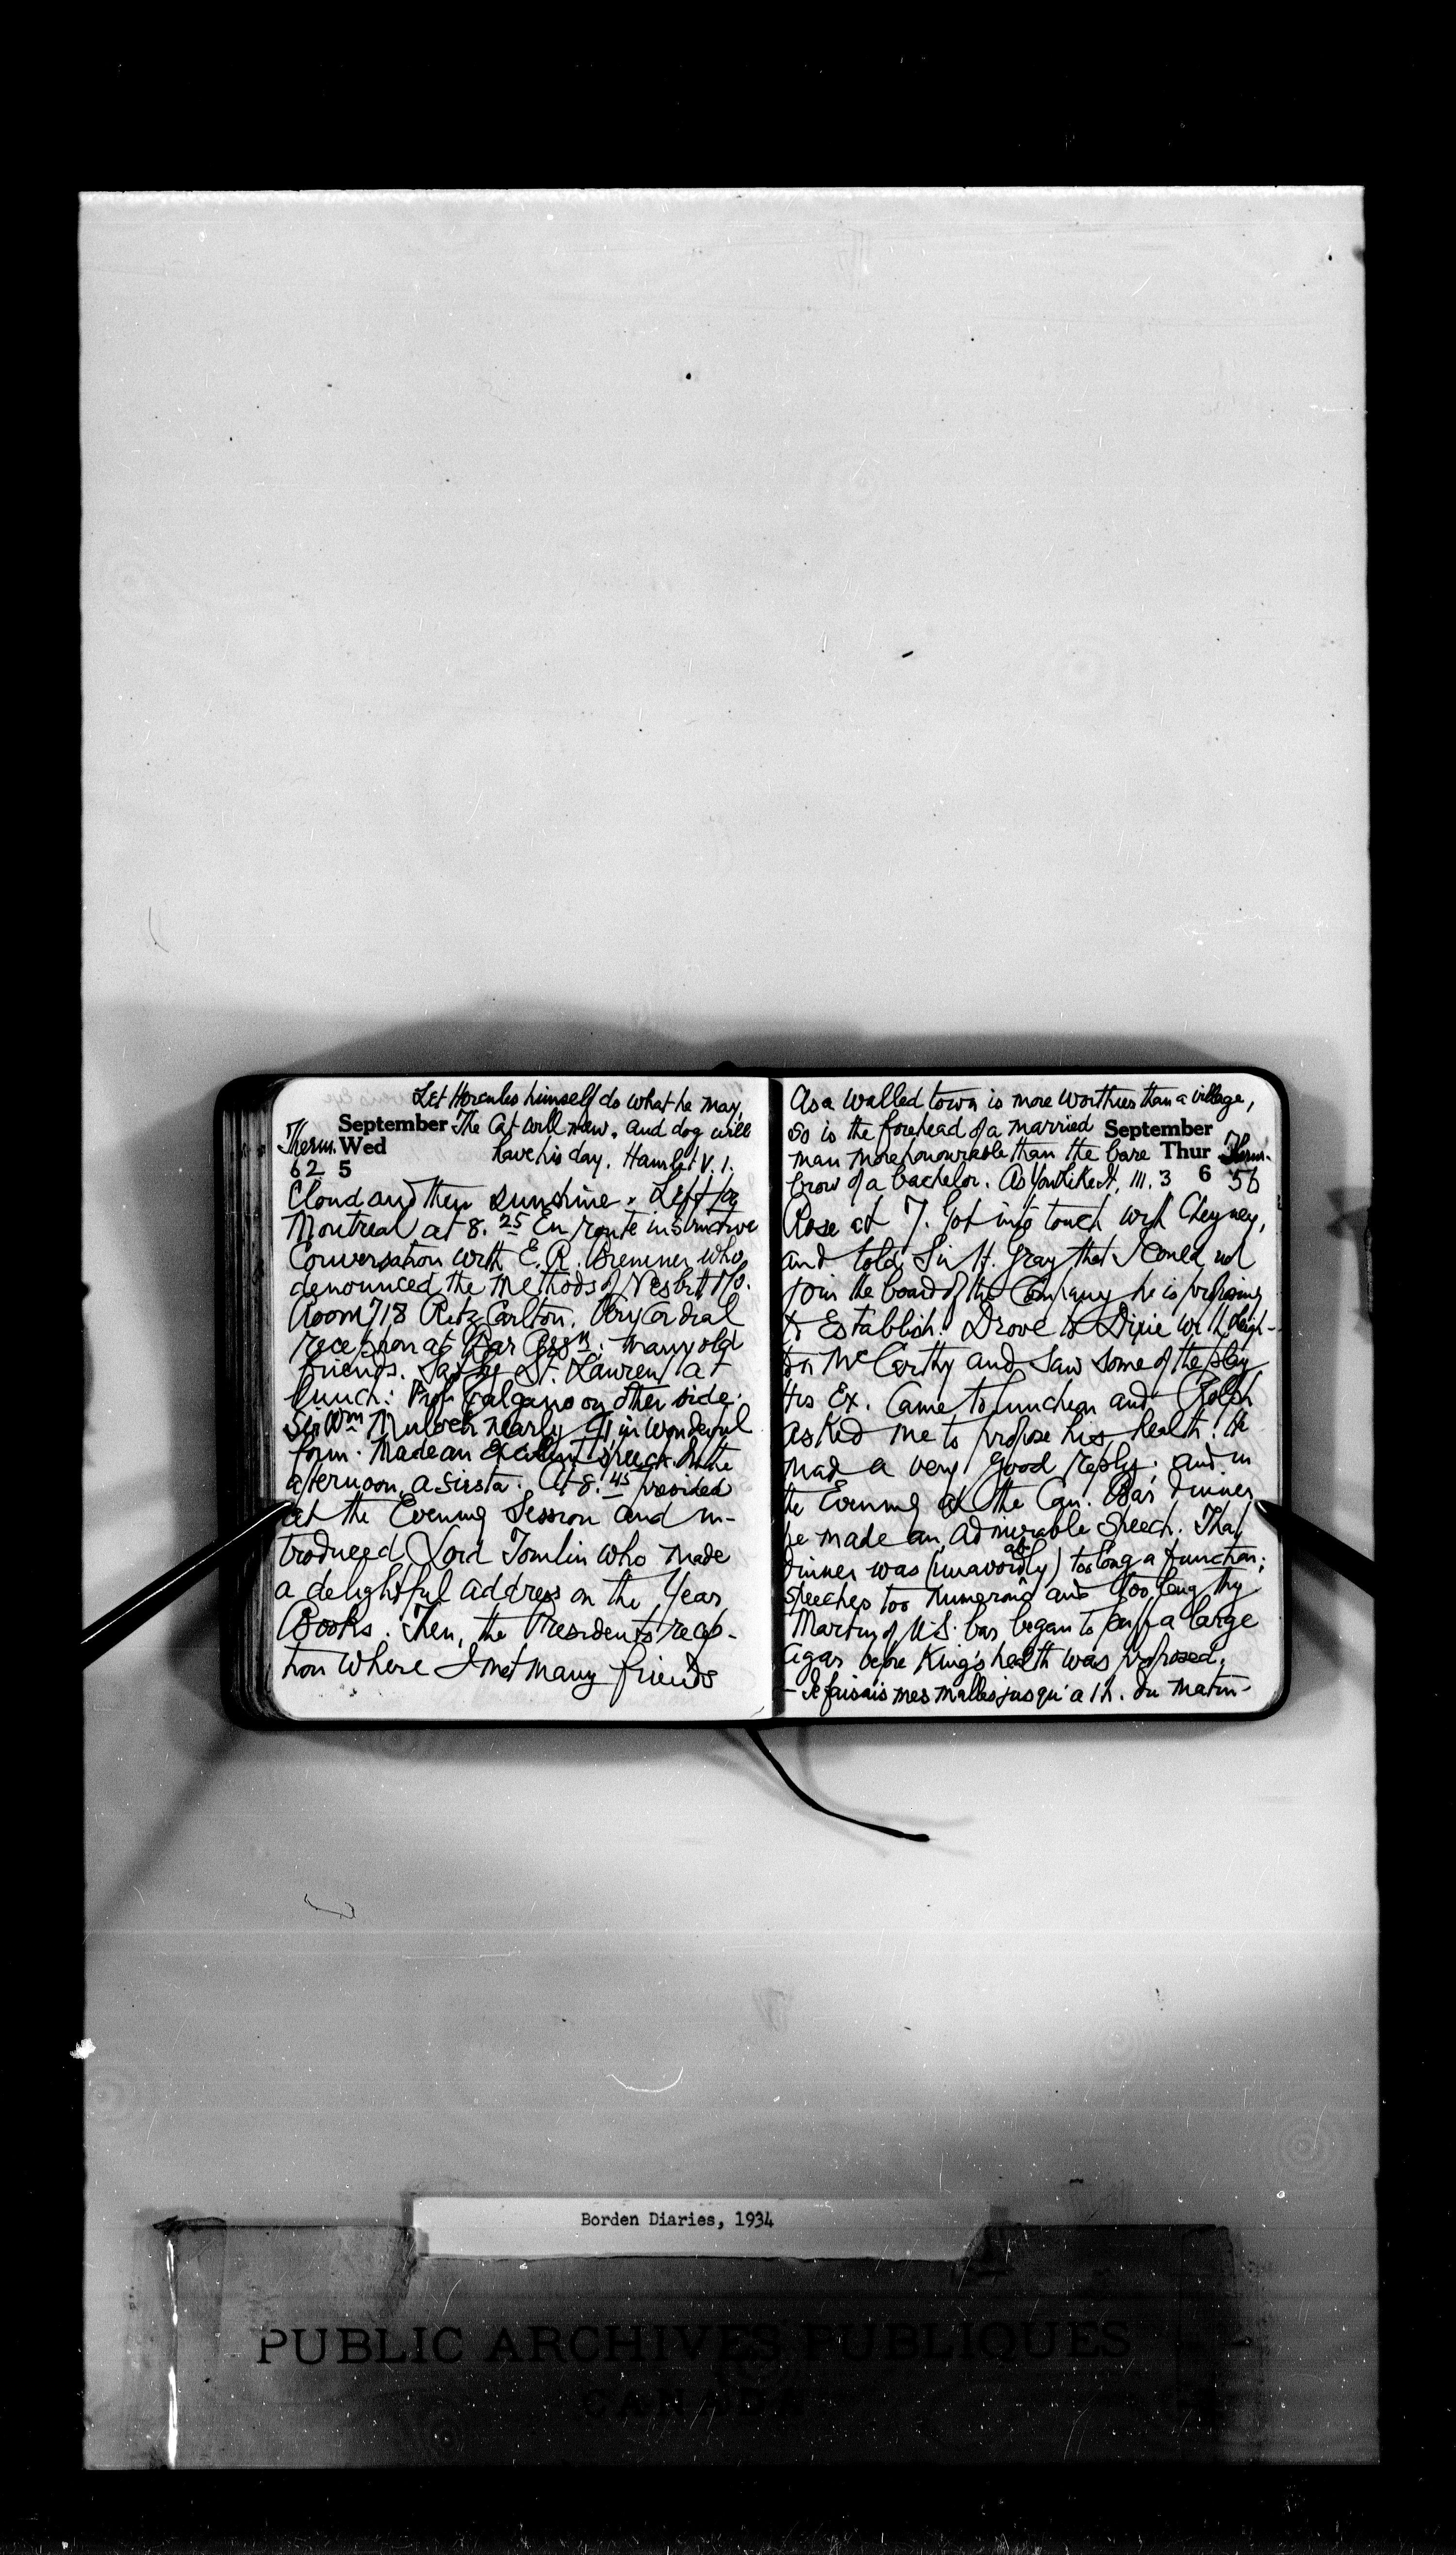 Let Hercules himself do what he may,
September The Cat will mew, and dog will
Therm. Wed have his day. Hamlet V. 1.
62 5
Cloud and then sunshine. Left for
Montreal at 8.25 En route instructive
Conversation with E. R. Bremner who
denounced the methods of Nesbitt
Room 718 Ritz Carlton. Very cordial
reception at Bar Assn. Many old
friends. Sat by St. Laurent at
lunch: Prof. Falgano on other side.
Sir Wm Mulock nearly 91 in wonderful
form. Made an excellent speech. In the
afternoon, a siesta. At 8.45 presided
at the Evening Session and in-
troduced Lord Tomlin who made
a delightful address on the Year
Books. Then, the President's recep-
tion where I met many friends
As a walled town is more worthier than a village,
so is the forehead of a married September
man more honourable than the bare Thur Therm.
brow of a bachelor. As You Like It, III. 3 6 56
Rose at 7. Got into touch with Cheyney,
and told Sir H. Gray that I could not
join the board of the Company he is proposing
to Establish. Drove to Dixie with Leigh-
ton McCarthy and saw some of the play
His Ex. Came to luncheon and Rolph
asked me to propose his health. He
mad a very good reply; and in
the Evening at the Can. Bar dinner
he made an admirable speech. That
dinner was (unavoidably) too long a function;
speeches too numerous and too lengthy
Martin of U.S. bar began to puff a large
cigar before King's health was proposed.
- Je faisais mes malles jusqu'a 1 h. du matin -
Borden Diaries, 1934
PUBLIC ARCHIVES PUBLIQUES
CANADA